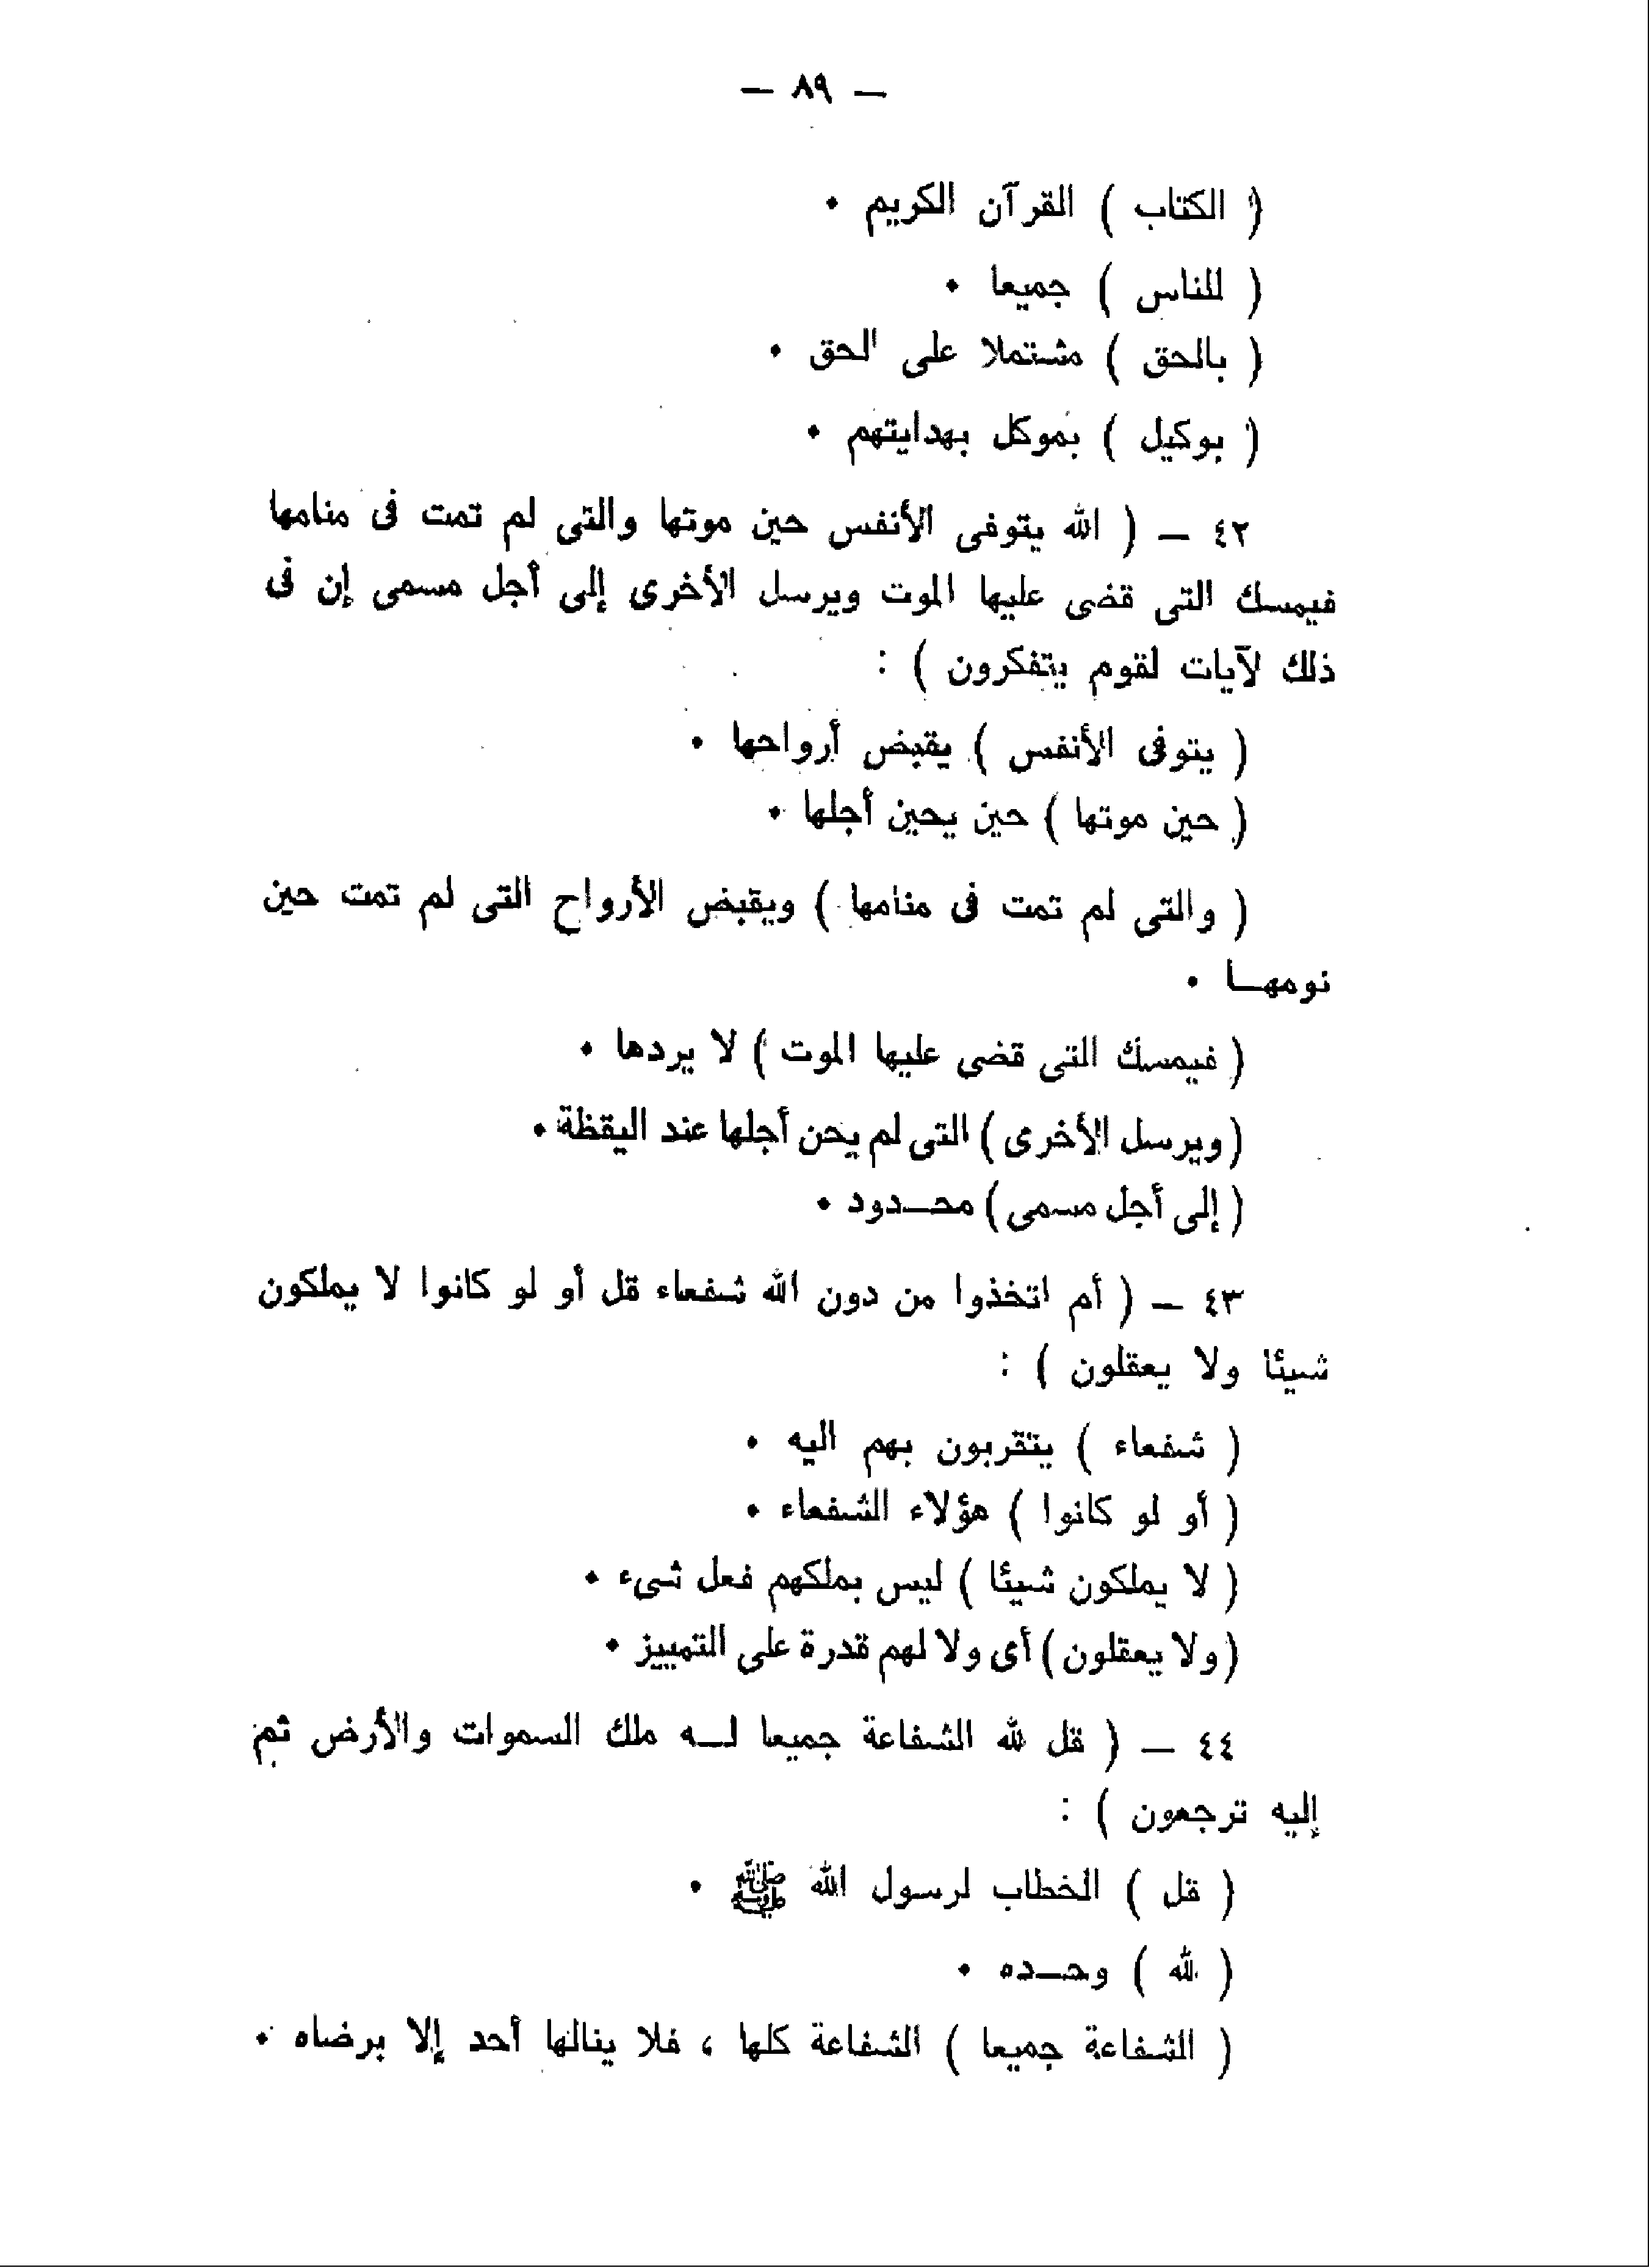 — ٨٩ —
( الكتاب ) القرآن الكريم .
( للناس ) جميعا .
( بالحق ) مشتملا على الحق .
( بوكيل ) بموكل بهدايتهم .
٤٢ — ( الله يتوفى الأنفس حين موتها والتى لم تمت فى منامها
فيمسك التى قضى عليها الموت ويرسل الأخرى إلى أجل مسمى إن فى
ذلك لآيات لقوم يتفكرون ) :
( يتوفى الأنفس ) يقبض أرواحها .
( حين موتها ) حين يحين أجلها .
( والتى لم تمت فى منامها ) ويقبض الأرواح التى لم تمت حين
نومهـا .
( فيمسك التى قضى عليها الموت ) لا يردها .
( ويرسل الأخرى ) التى لم يحن أجلها عند اليقظة .
( إلى أجل مسمى ) محـدود .
٤٣ — ( أم اتخذوا من دون الله شفعاء قل أو لو كانوا لا يملكون
شيئا ولا يعقلون ) :
( شفعاء ) يتقربون بهم اليه .
( أو لو كانوا ) هؤلاء الشفعاء .
( لا يملكون شيئا ) ليس بملكهم فعل شىء .
( ولا يعقلون ) أى ولا لهم قدرة على التمييز .
٤٤ — ( قل لله الشفاعة جميعا لـه ملك السموات والأرض ثم
إليه ترجعون ) :
( قل ) الخطاب لرسول الله ﷺ .
( لله ) وحـده .
( الشفاعة جميعا ) الشفاعة كلها ، فلا ينالها أحد إلا برضاه .